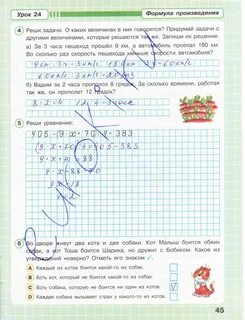 Урок 24
Формула произведения
4 Реши задачи. О каких величинах в них говорится? Придумай задачи с
другими величинами, которые решаются так же. Запиши их решение.
а) За 3 часа пешеход прошёл 9 км, а автомобиль проехал 180 км.
Во сколько раз скорость пешехода меньше скорости автомобиля?
б) Вадим за 2 часа прополол 8 грядок. За сколько времени, работая
так же, он прополет 12 грядок?
8:2=4 12:4=3
5 Реши уравнение:
405-(9·x+70):4=383
9·x=18
x=2
6 Во дворе живут два кота и две собаки. Кот Малыш боится обеих
собак, а кот Тоша боится Шарика, но дружит с Бобиком. Какое из
утверждений неверно? Отметь его знаком ✓.
А Каждый из котов боится какой-то из собак.
В Есть кот, который боится всех собак.
С Есть собака, которую не боится ни один из котов.
D Каждая собака вызывает страх у какого-то из котов.
45